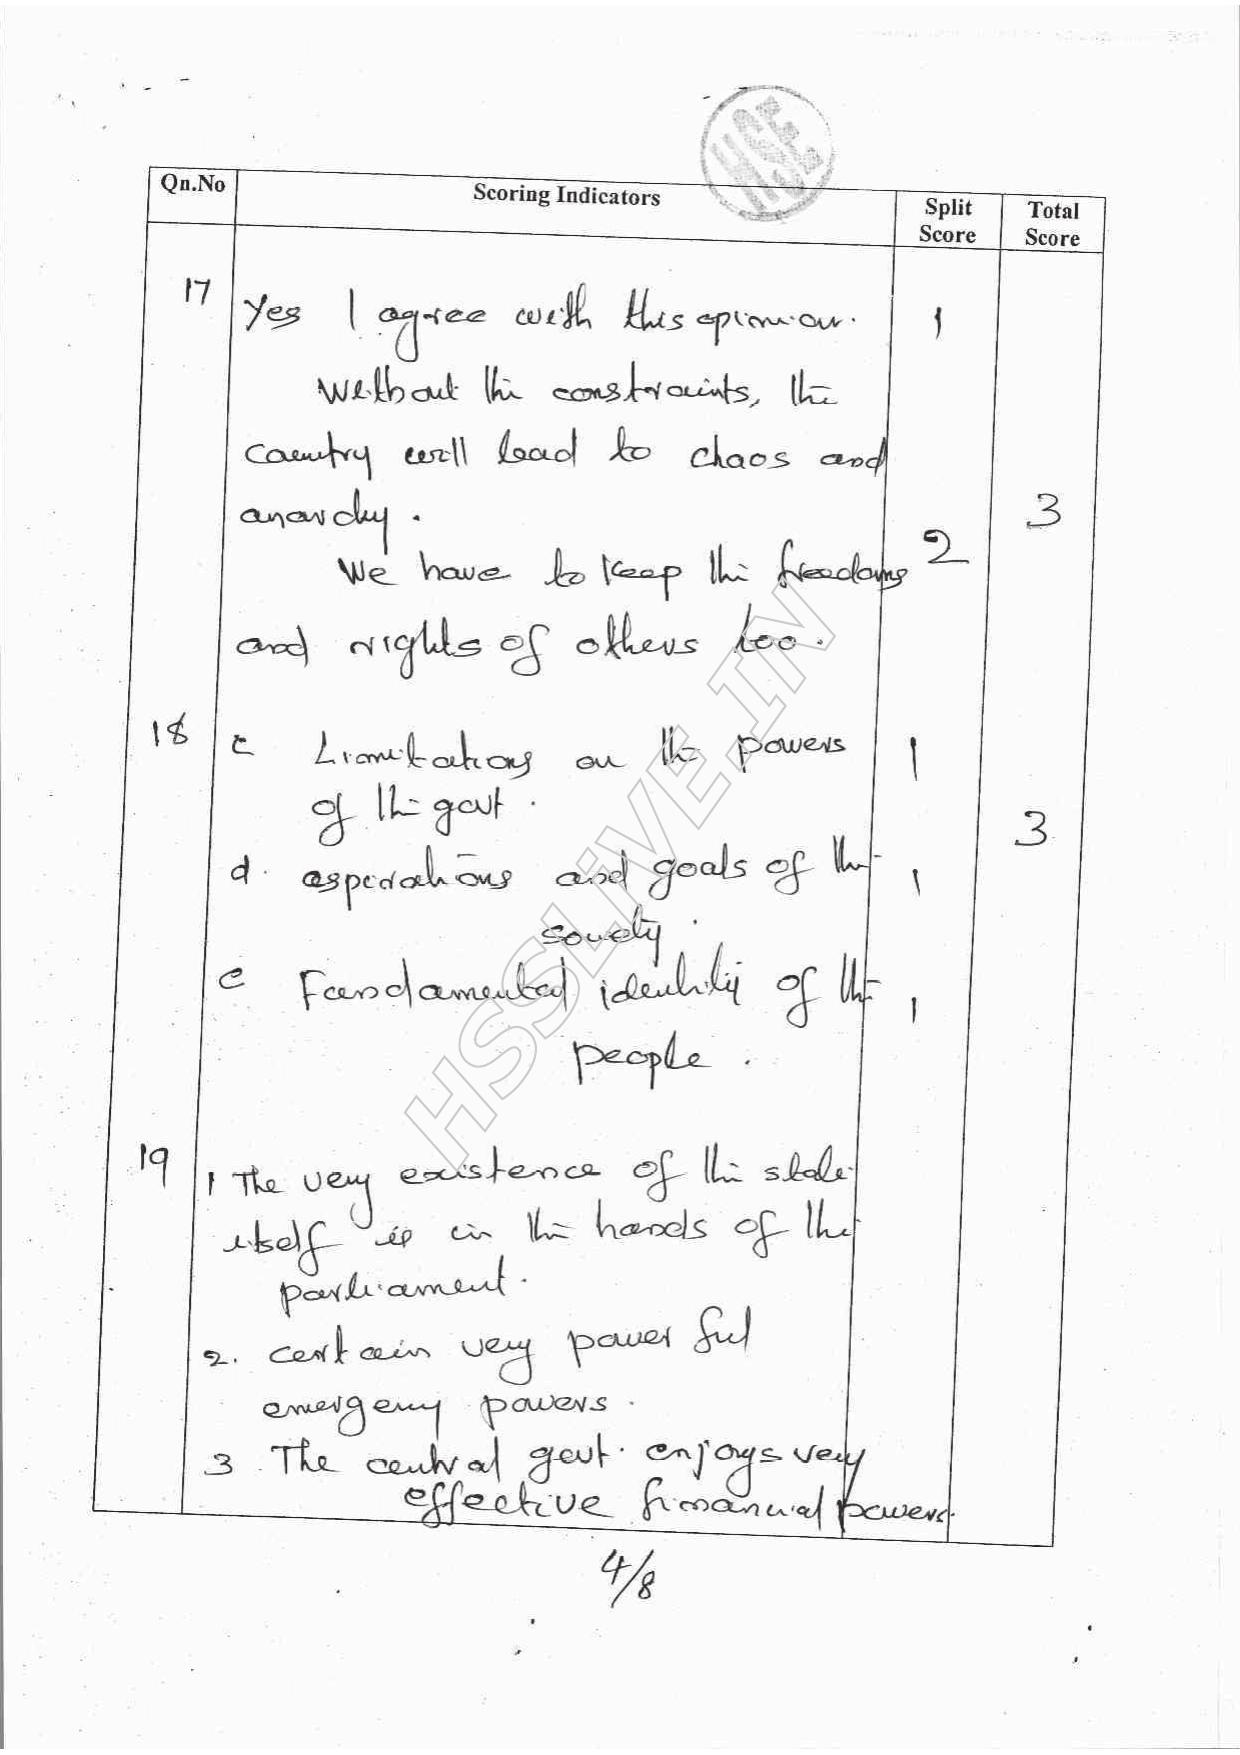 HSE
Qn.No Scoring Indicators Split Score Total Score
17 Yes I agree with this opinion. 1
Without the constraints, the
country will lead to chaos and
anarchy. 3
We have to keep the freedoms 2
and rights of others too.
18 c Limitations on the powers 1
of the govt. 3
d. aspirations and goals of the 1
society.
e Fundamental identity of the 1
people.
19 1 The very existence of the state
itself is in the hands of the
parliament.
2. certain very powerful
emergency powers.
3. The central govt. enjoys very
effective financial powers.
4/8
HSSLiVE.IN